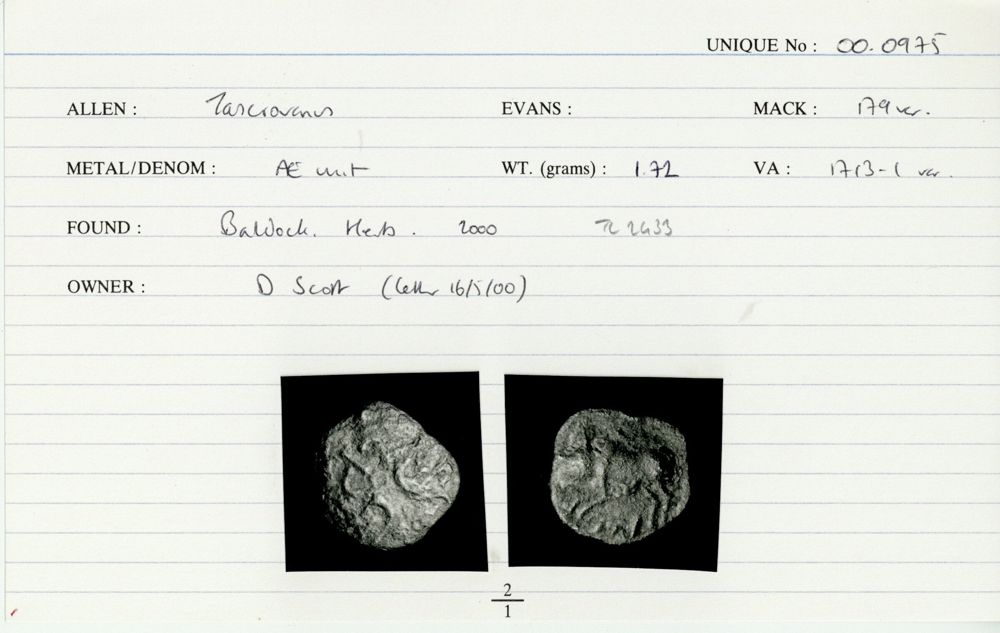 UNIQUE No : 00.0975
ALLEN : Tasciovanus EVANS : MACK : 179 var.
METAL/DENOM : Æ unit WT. (grams) : 1.72 VA : 1713-1 var.
FOUND : Baldock. Herts. 2000 TL 2433
OWNER : D Scott (letter 16/5/00)
2
1